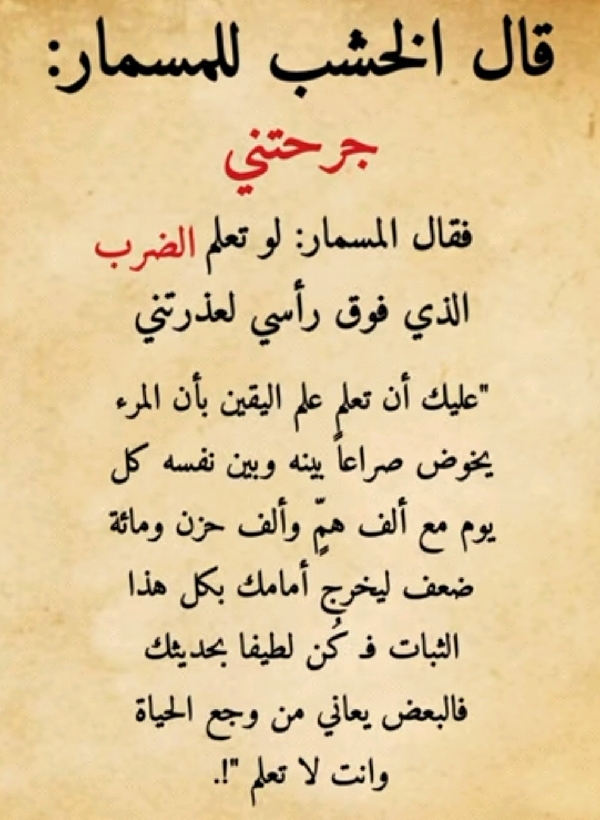 قال الخشب للمسمار:
جرحتني
فقال المسمار: لو تعلم الضرب
الذي فوق رأسي لعذرتني
"عليك أن تعلم علم اليقين بأن المرء
يخوض صراعاً بينه وبين نفسه كل
يوم مع ألف همٍّ وألف حزن ومائة
ضعف ليخرج أمامك بكل هذا
الثبات فـ كُن لطيفا بحديثك
فالبعض يعاني من وجع الحياة
وانت لا تعلم "!.